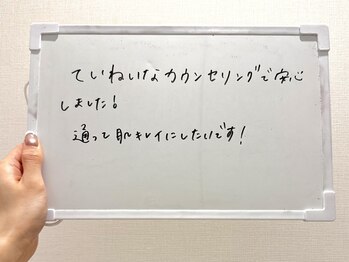 ていねいなカウンセリングで安心
しました!
通って肌キレイにしたいです!